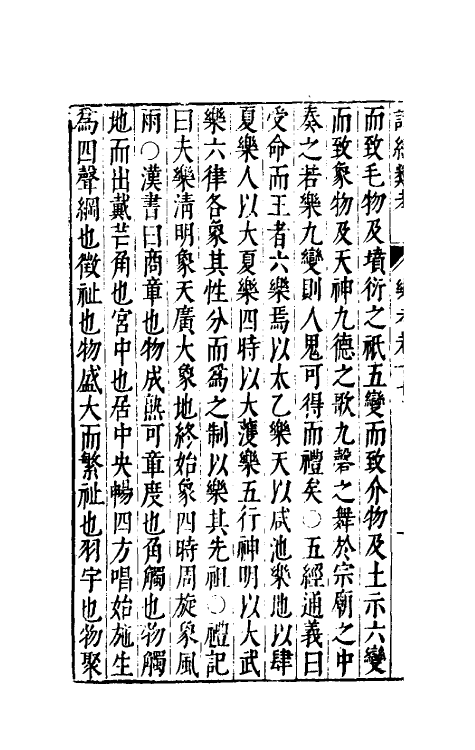 詩經類考
樂考卷二十
而致毛物及墳衍之祇五變而致介物及土示六變
而致象物及天神九德之歌九磬之舞於宗廟之中
奏之若樂九變則人鬼可得而禮矣○五經通義曰
受命而王者六樂焉以太乙樂天以咸池樂地以肆
夏樂人以大夏樂四時以大濩樂五行神明以大武
樂六律各象其性分而爲之制以樂其先祖○禮記
曰夫樂清明象天廣大象地終始象四時周旋象風
雨○漢書曰商章也物成熟可章度也角觸也物觸
地而出戴芒角也宮中也居中央暢四方唱始施生
爲四聲綱也徵祉也物盛大而繁祉也羽宇也物聚